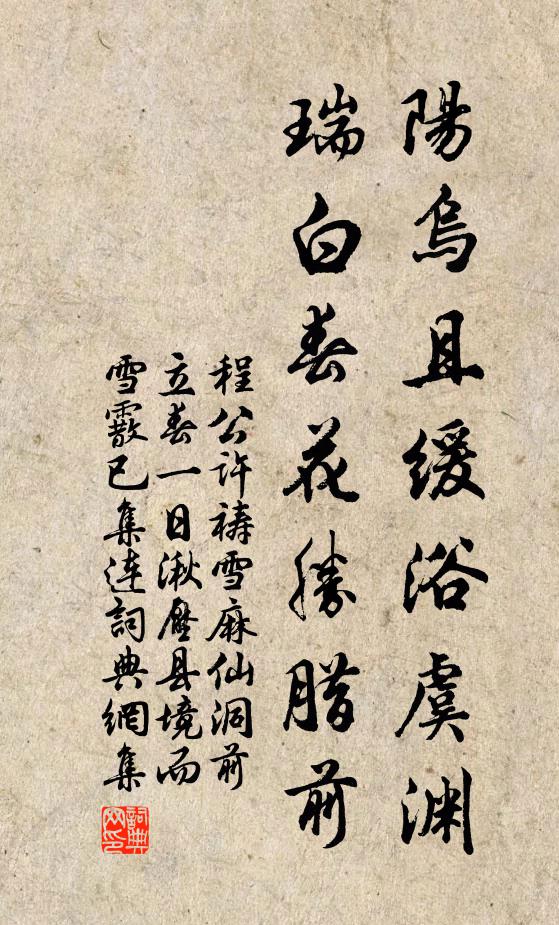 陽烏且緩浴虞淵
瑞白春花勝腊前
程公許禱雪麻仙洞前
立春一日湫壓县境而
雪霰已集連詞典網集
詞典网印